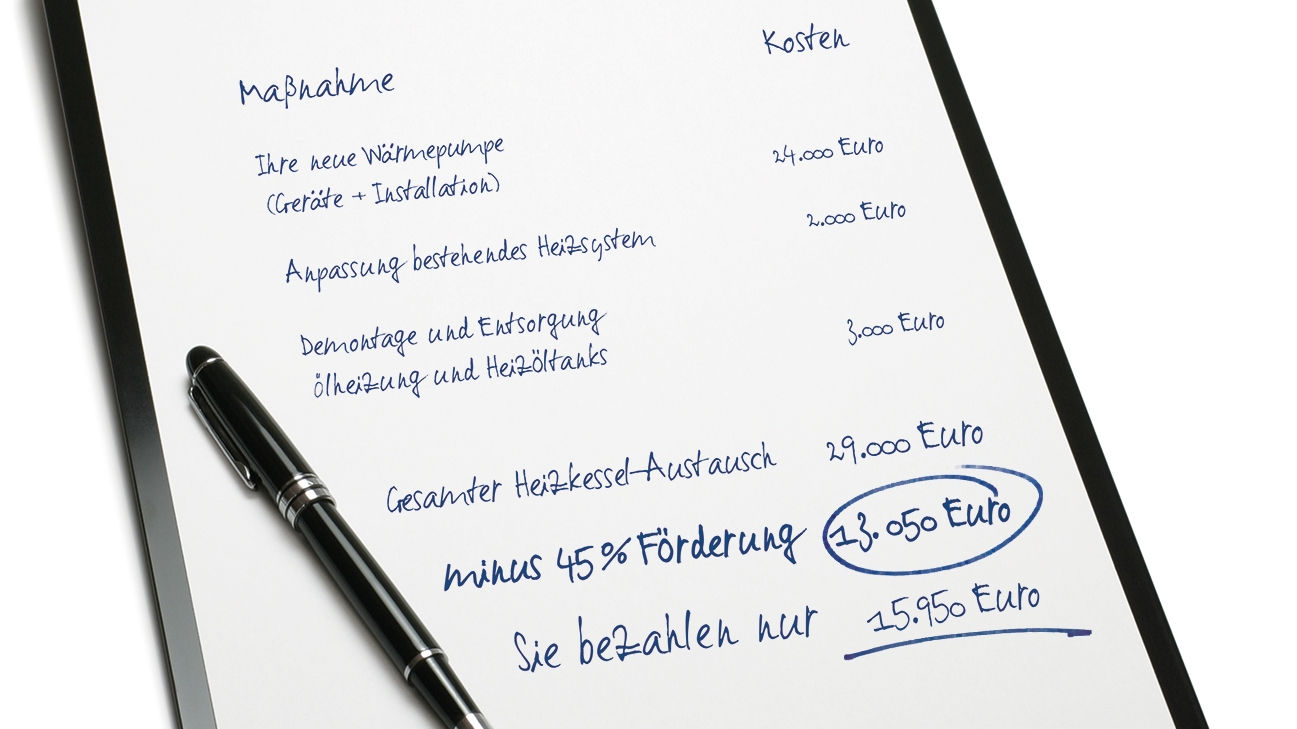 Maßnahme Kosten
Ihre neue Wärmepumpe 24.000 Euro
(Geräte + Installation)
Anpassung bestehendes Heizsystem 2.000 Euro
Demontage und Entsorgung 3.000 Euro
Ölheizung und Heizöltanks
Gesamter Heizkessel-Austausch 29.000 Euro
minus 45% Förderung 13.050 Euro
Sie bezahlen nur 15.950 Euro